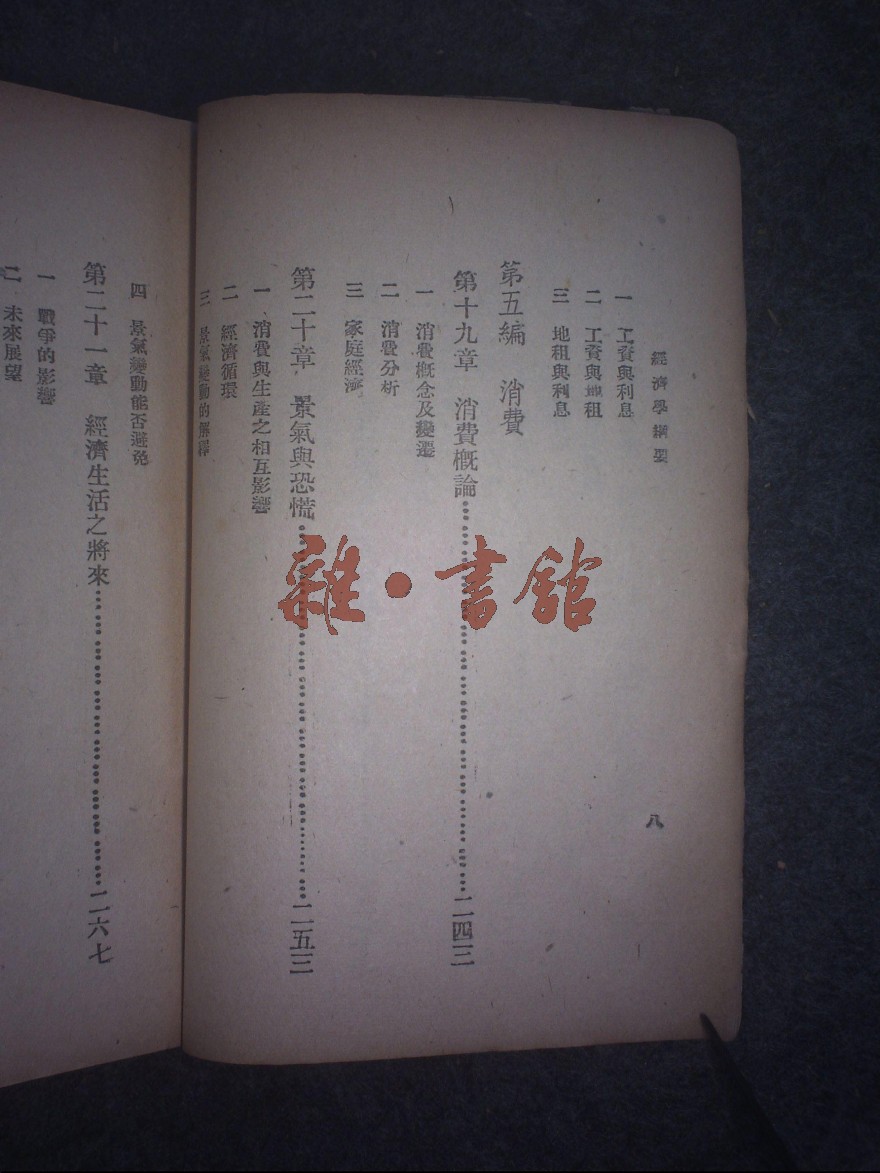 經濟學綱要
八
一 工資與利息
二 工資與地租
三 地租與利息
第五編 消費
第十九章 消費概論……二四三
一 消費概念及變遷
二 消費分析
三 家庭經濟
第二十章 景氣與恐慌……二五三
一 消費與生產之相互影響
二 經濟循環
三 景氣變動的解釋
四 景氣變動能否避免
第二十一章 經濟生活之將來……二六七
一 戰爭的影響
二 未來展望
雜·書館